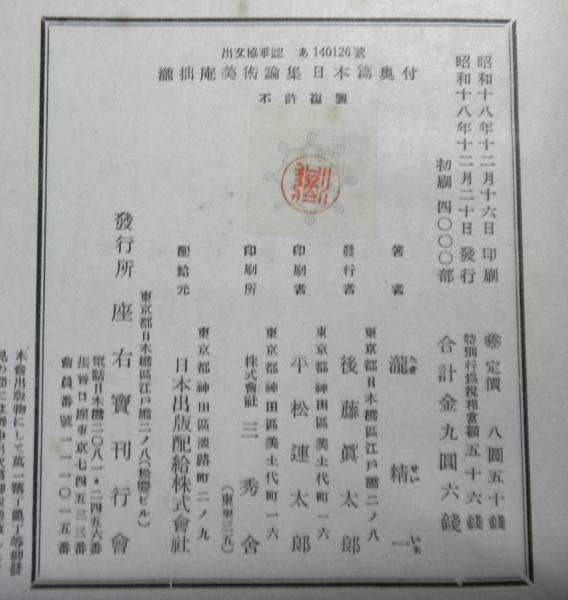 出文協承認 あ140126號
瀧拙庵美術論集 日本篇奥付
不許複製
昭和十八年十二月十六日印刷
昭和十八年十二月二十日發行
初刷四〇〇〇部
定價 八圓五十錢
特別行為税相當額 五十六錢
合計金九圓六錢
著者 瀧精一
たきせいいち
東京都日本橋區江戸橋二ノ八
發行者 後藤眞太郎
東京都神田區美土代町一六
印刷者 平松連太郎
東京都神田區美土代町一六
印刷所 株式會社 三秀舍
(東東三五)
東京都神田區淡路町二ノ九
配給元 日本出版配給株式會社
東京都日本橋區江戸橋二ノ八(松慶ビル)
發行所 座右寶刊行會
電話日本橋二〇八一・二四五六番
振替口座東京七四五三三番
會員番號一一一〇一五番
本會出版物にして萬一落丁亂丁等御發